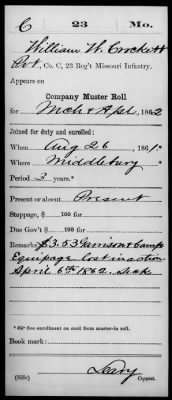 C 23 Mo.
William W. Crockett
Pvt, Co. C, 23 Reg't Missouri Infantry.
Appears on
Company Muster Roll
for Mch & Apl, 1862
Joined for duty and enrolled:
When Aug 26, 1861.
Where Middlebury
Period 3 years.*
Present or absent Present
Stoppage, $ 100 for
Due Gov't $ 100 for
Remarks: $3.53 Garrison & Camp
Equipage lost in action
April 6th 1862. Sick
* See enrollment on card from muster-in roll.
Book mark:
Leary
(358c) Copyist.